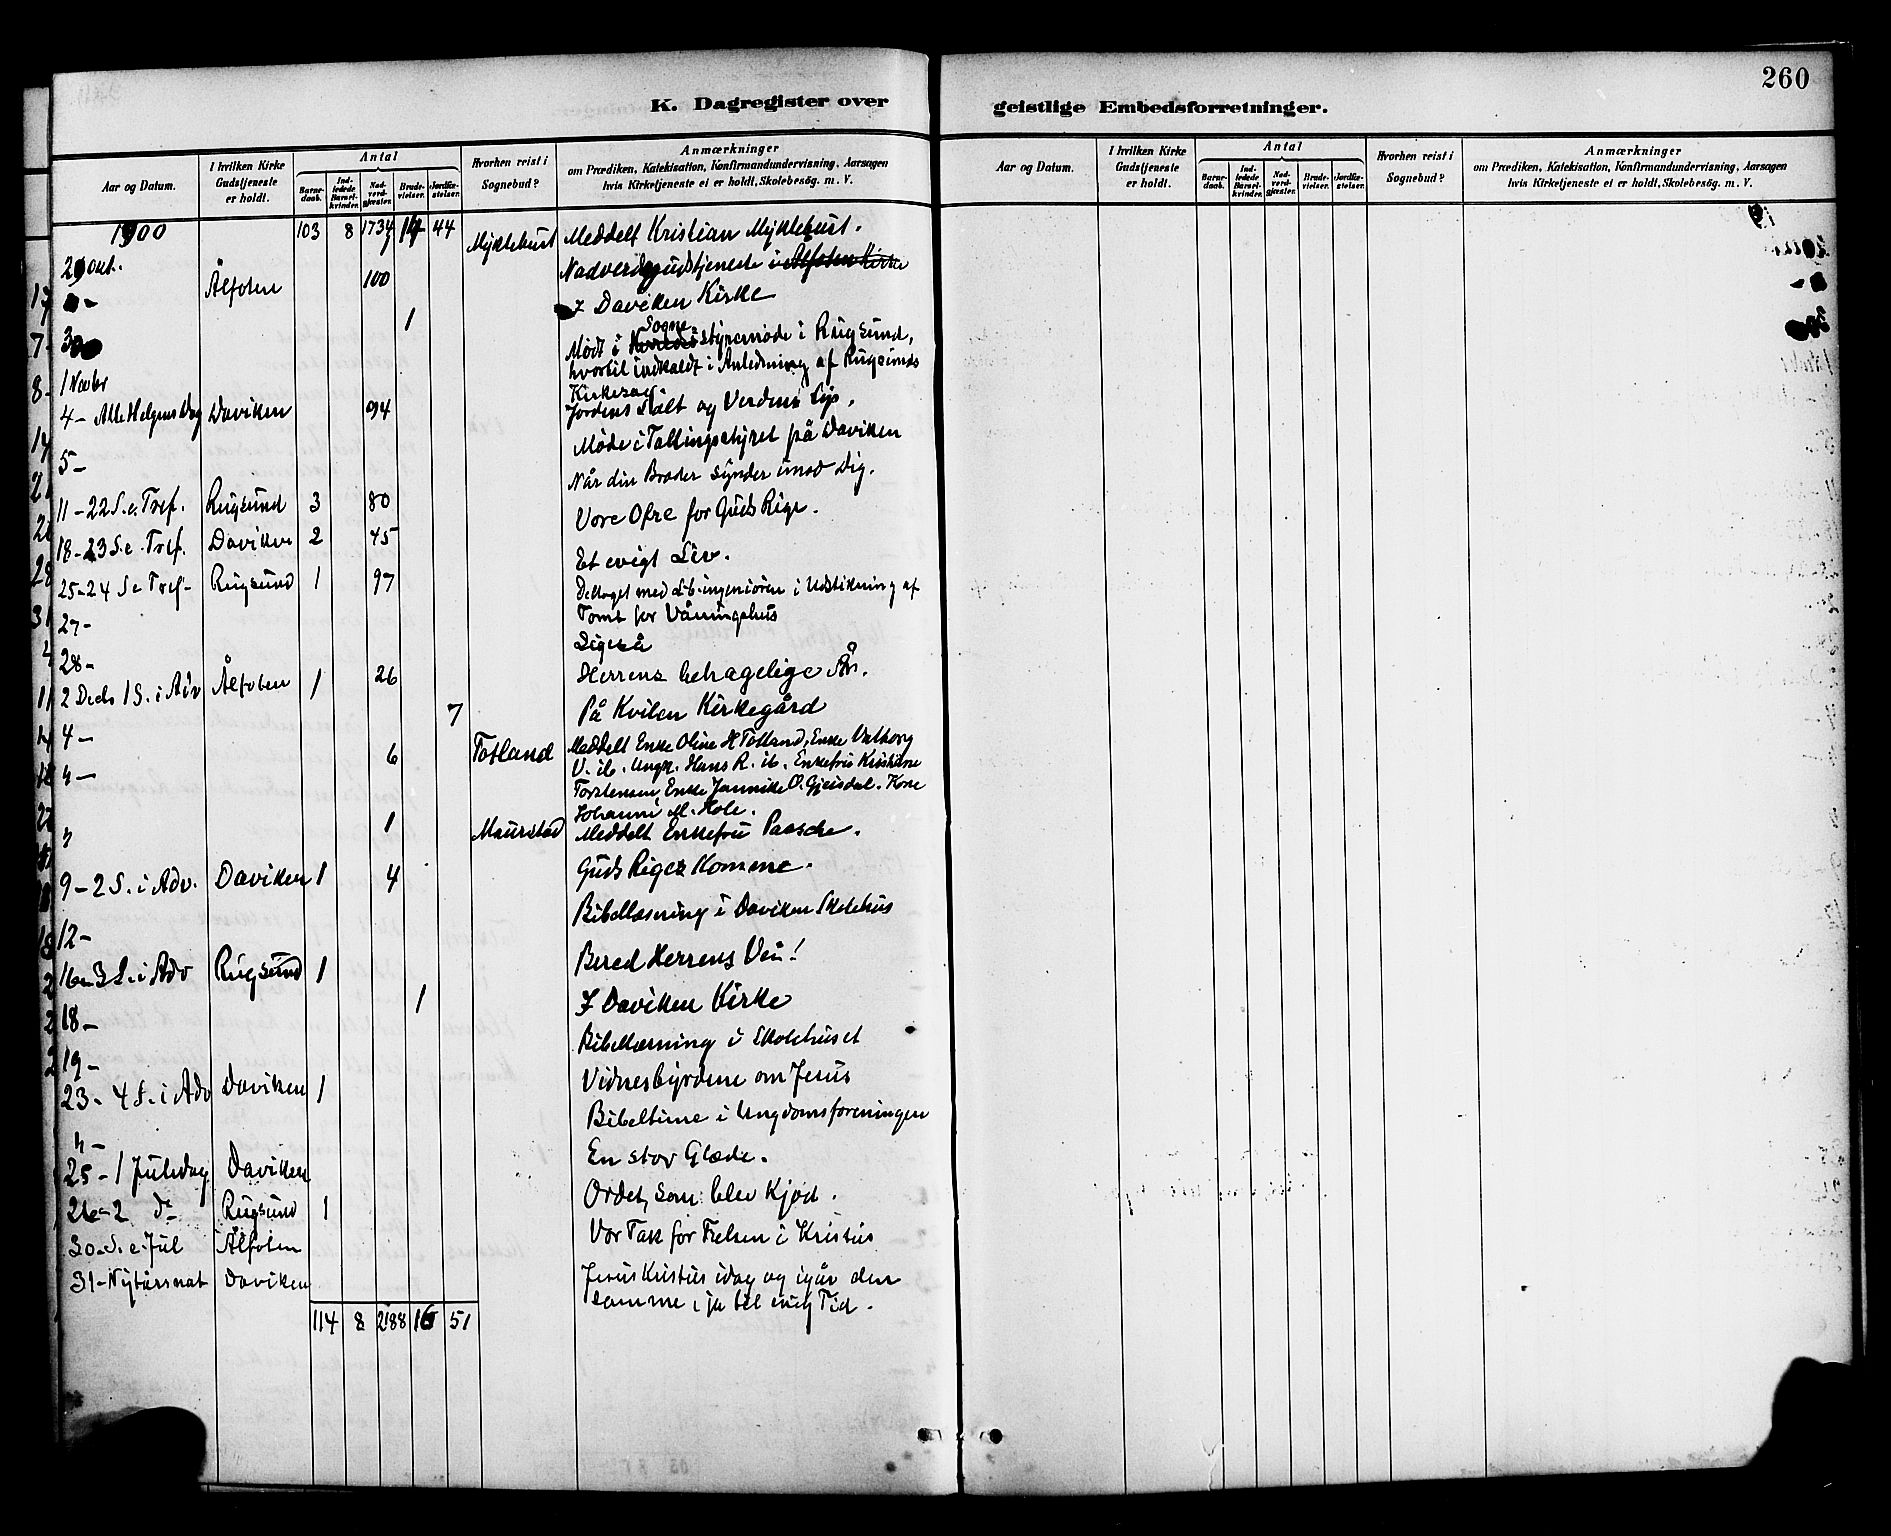 260
K. Dagregister over geistlige Embedsforretninger.
Aar og Datum. I hvilken Kirke Gudstjeneste er holdt. Antal Barnedaab. Indledede Barselkvinder. Nadverdgjæster. Brudevielser. Jordfæstelser. Hvorhen reist i Sognebud? Anmærkninger om Prædiken, Katekisation, Konfirmandundervisning, Aarsagen hvis Kirketjeneste ei er holdt, Skolebesøg. m. V.
Aar og Datum. I hvilken Kirke Gudstjeneste er holdt. Antal Barnedaab. Indledede Barselkvinder. Nadverdgjæster. Brudevielser. Jordfæstelser. Hvorhen reist i Sognebud? Anmærkninger om Prædiken, Katekisation, Konfirmandundervisning, Aarsagen hvis Kirketjeneste ei er holdt, Skolebesøg. m. V.
1900 103 8 1734 14 44 Myklebust Meddelt Kristian Myklebust.
29 Okt. Ålfoten 100 Nadverdgudstjeneste i Alfoten Kirke
1 I Daviken Kirke
30
1 Novbr Mødt i Sognestyremøde i Rugsund,
hvortil indkaldt i Anledning af Rugsunds
Kirkesag.
4 - Alle Helgens Dag Daviken 94 Jordens Salt og Verdens Lys.
5 - Møde i Tellingsstyret på Daviken
11 - 22 S. e. Tref. Rugsund 3 80 Når din Broder synder imod Dig.
18 - 23 S. e. Tref. Daviken 2 45 Vore Ofre for Guds Rige.
25 - 24 S e Tref - Rugsund 1 97 Et evigt Liv.
27 - Deltaget med ingeniøren i Udstikning af
Tomt for Våningshus
28 - Ligeså
2 Decb 1 S. i Adv Ålfoten 1 26 Herrens behagelige År.
4 - 7 På Kvilen Kirkegård
" - 6 Totland Meddelt Enke Oline H Totland, Enke Valborg
V. ib. Ungk. Hans R. ib. Enkefru Kristine
Torstensen, Enke Jannike O. Gjeisdal. Kone
Johanne M. Hole.
" 1 Maurstad Meddelt Enkefru Paasche.
9 - 2 S. i Adv. Daviken 1 4 Guds Riges Komme.
12 - Bibellæsning i Daviken Skolehus
16 - 3 S. i Adv Rugsund 1 Bered Herrens Vei!
18 - 1 I Daviken Kirke
19 - Bibellæsning i Skolehuset
23 - 4 S. i Adv Daviken 1 Vidnesbyrdene om Jesus
" - Bibeltime i Ungdomsforeningen
25 - 1 Juledag Daviken En stor Glæde.
26 - 2 do Rugsund 1 Ordet, som blev Kjød.
30 - S. e. Jul Ålfoten Vor Tak for Frelsen i Kristus
31 - Nytårsnat Daviken Jesus Kristus idag og igår den
samme, ja til evig Tid.
114 8 2188 16 51